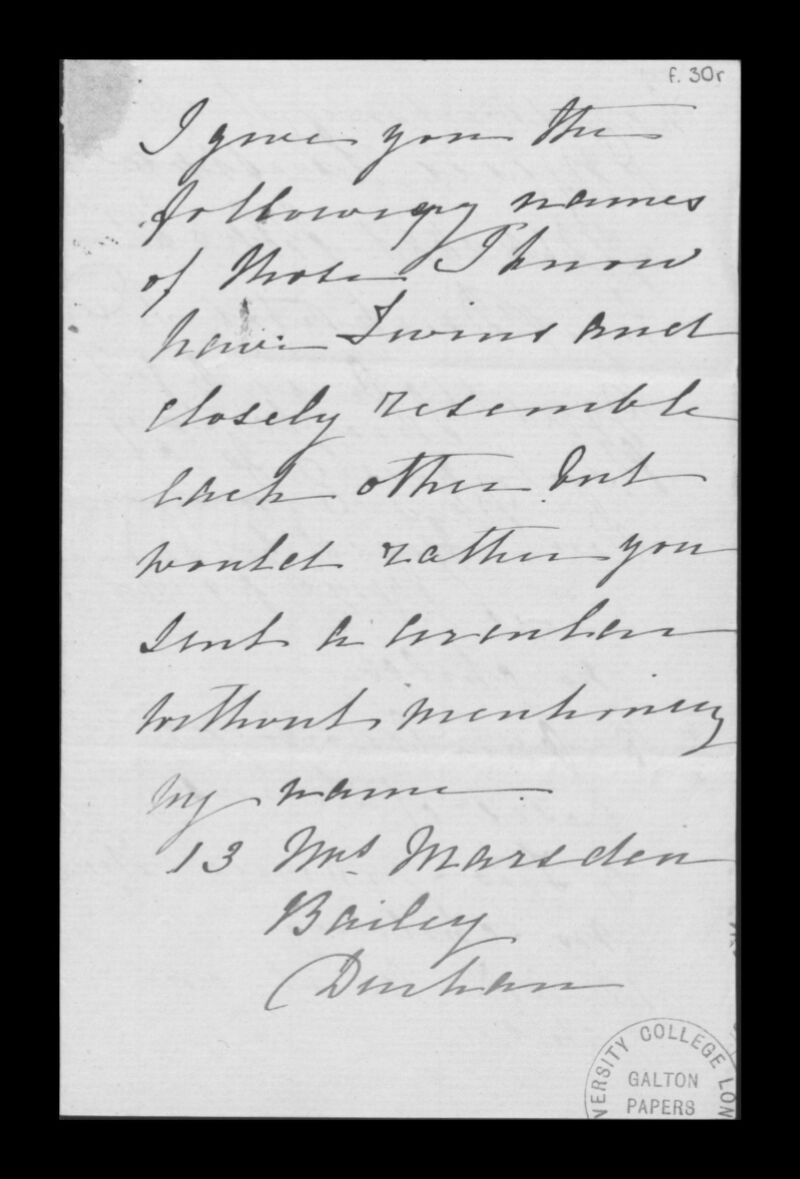 f. 30r
I give you the
following names
of those I know
have Twins and
closely resemble
each other but
would rather you
sent a circular
without mentioning
my name
13 Mrs Marsden
Bailey
Durham
VERSITY COLLEGE LON
GALTON
PAPERS